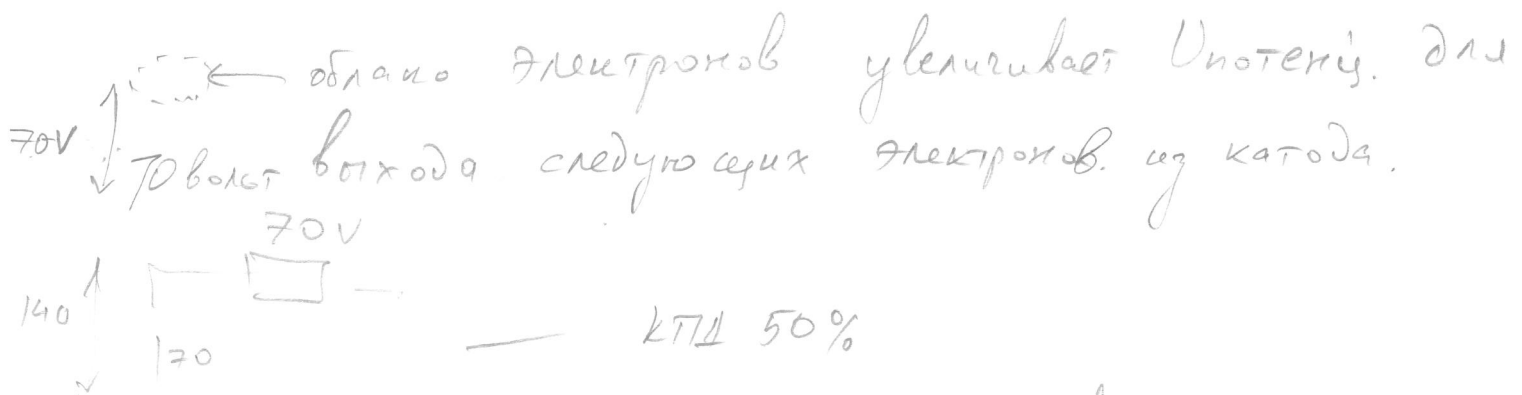 облако электронов увеличивает Uпотенц. для
70V
70 вольт выхода следующих электронов. из катода.
70V
140
170
КПД 50%